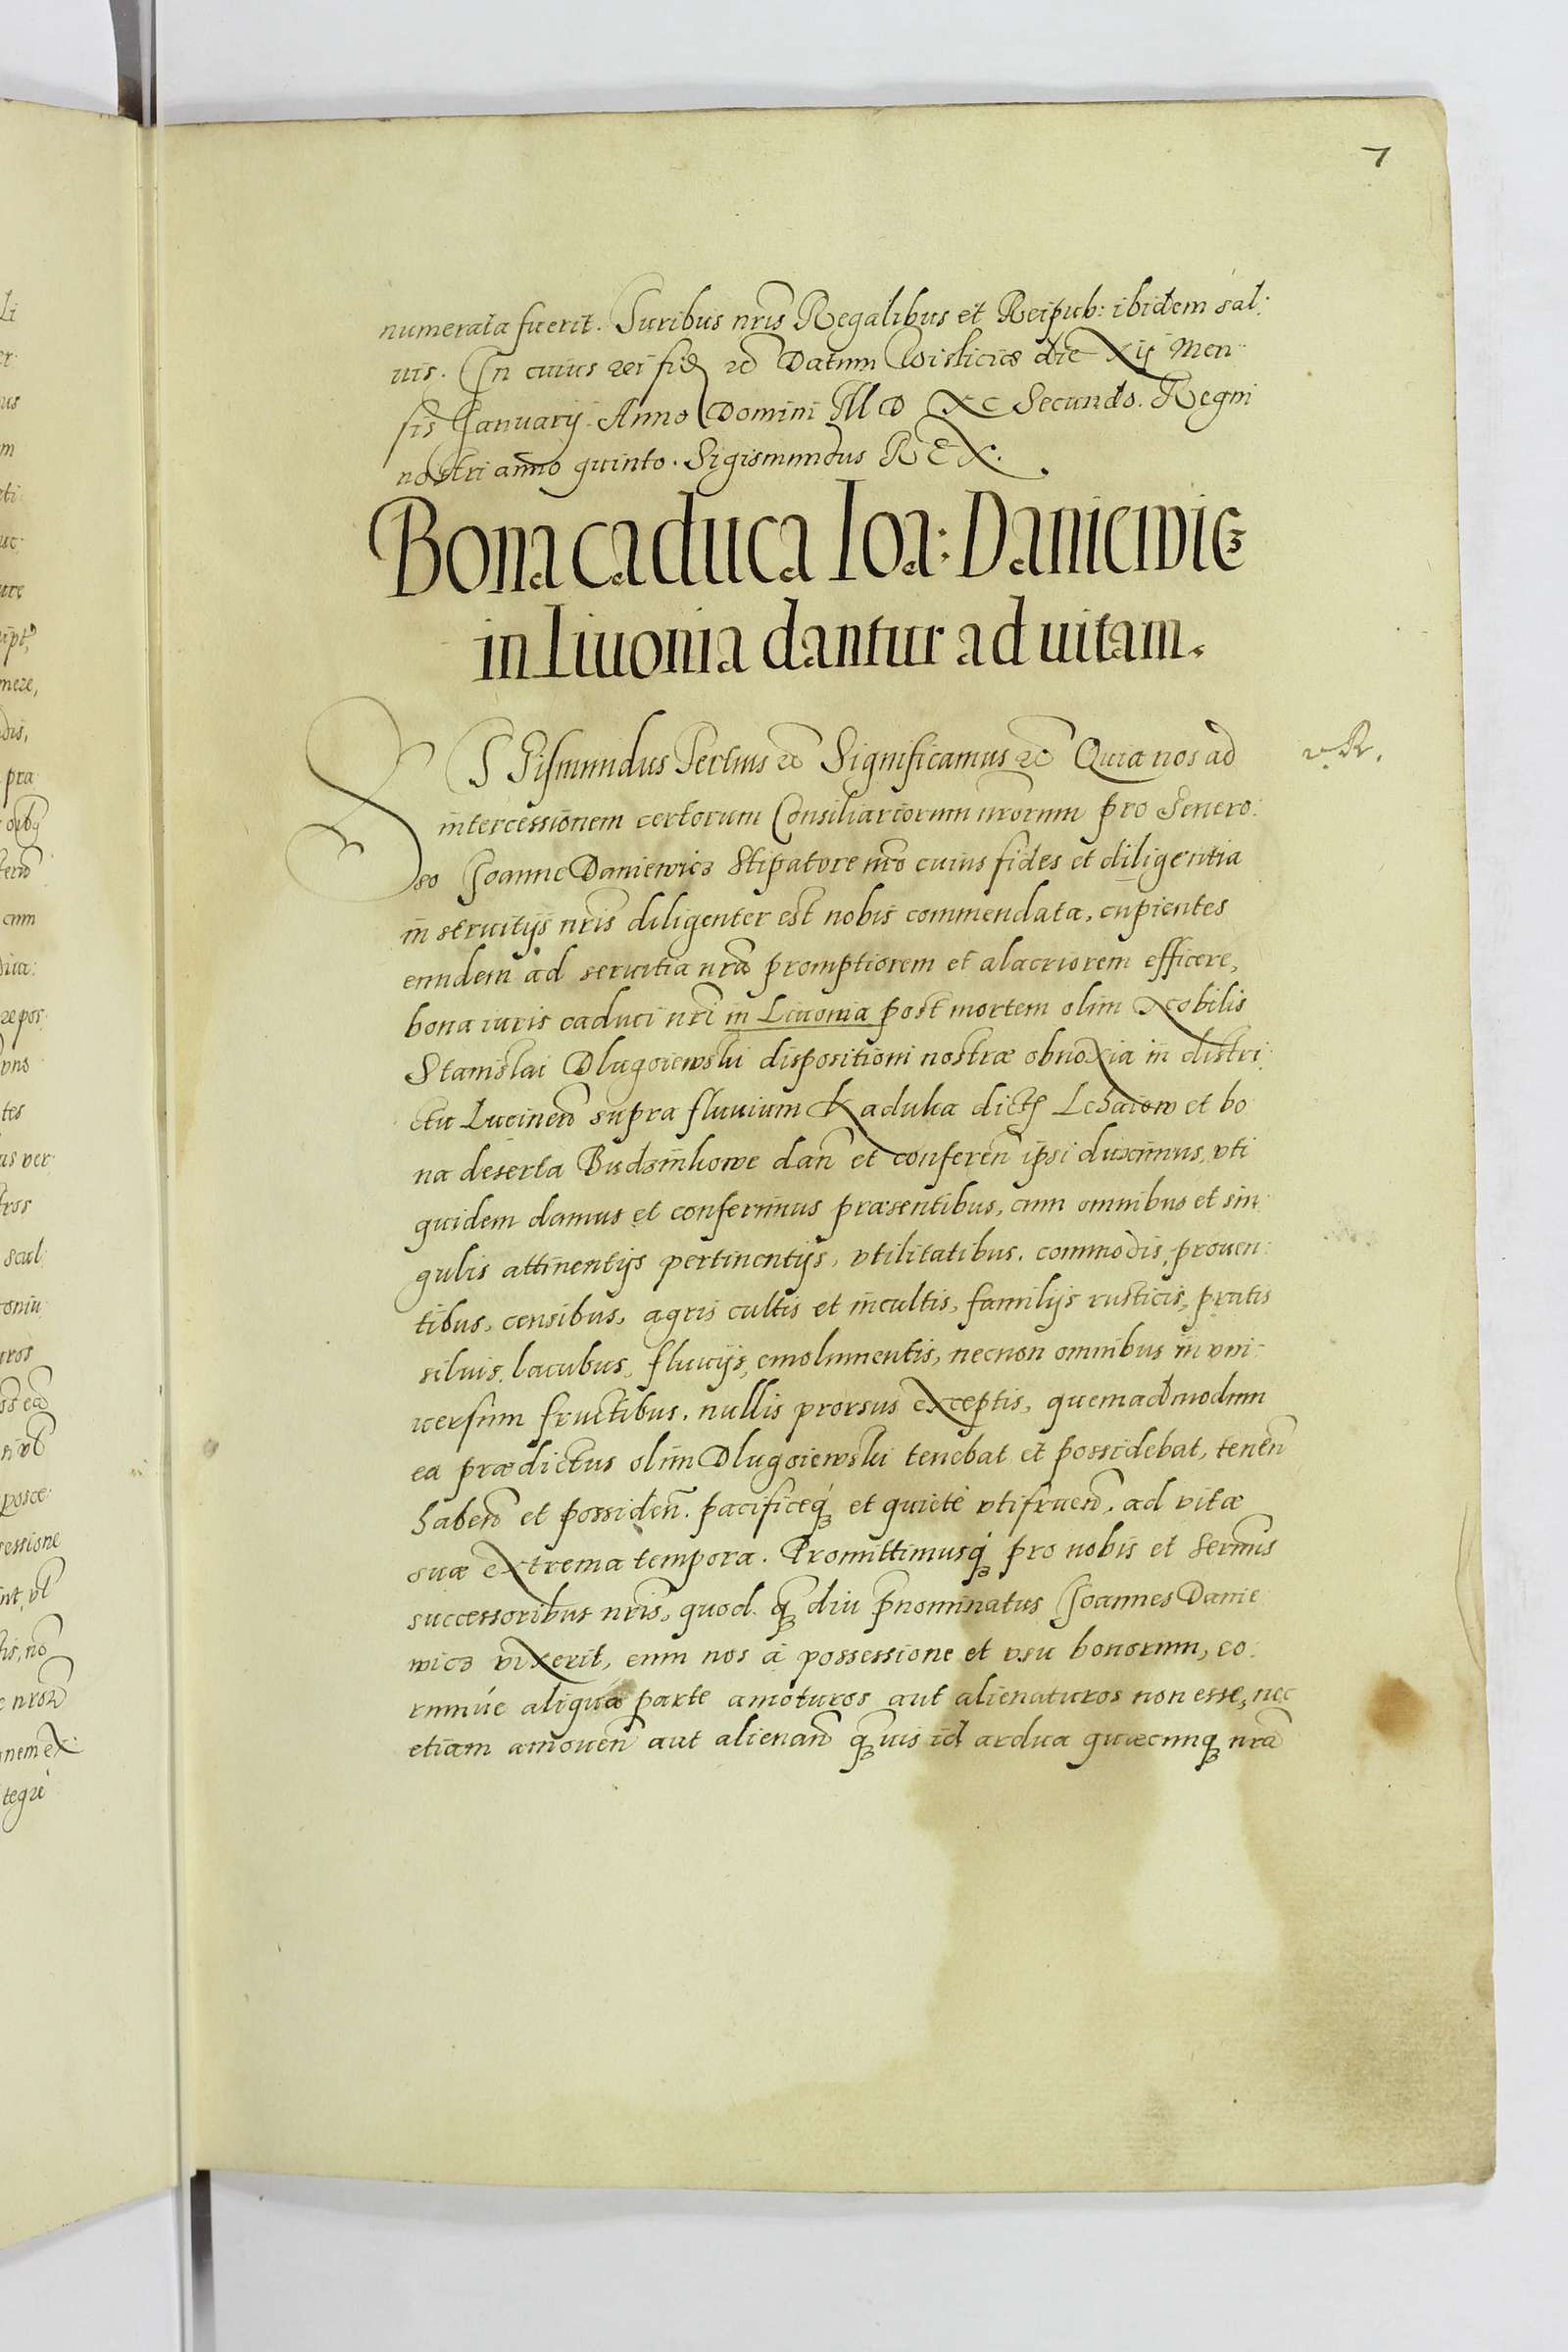 7
numerata fuerit. Iuribus nris Regalibus et Reipub: ibidem sal:
uis. In cuius rei fid Datum Wisliciae die Xij Men-
sis Ianuarij. Anno Domini M D XC Secundo. Regni
nostri anno quinto. Sigismundus REX.
Bona caduca Ioa: Daniewicz
in Liuonia dantur ad uitam.
SIGismundus Tertius etc Significamus etc Quia nos ad
intercessionem certorum Consiliariorum nrorum pro Genero:
so Joanne Daniewicz Stipatore nro cuius fides et diligentia
in seruitijs nris diligenter est nobis commendata, cupientes
eundem ad seruitia nra promptiorem et alacriorem efficere,
bona iuris caduci nri in Liuonia post mortem olim Nobilis
Stanislai Dlugoiewski dispositioni nostrae obnoxia in distri:
ctu Lucinen supra fluuium Kaduka dict Lehaiow et bo
na deserta Budzinkowe dan et conferen ipsi duximus, vti
quidem damus et conferimus praesentibus, cum omnibus et sin
gulis attinentijs pertinentijs, vtilitatibus, commodis, prouen:
tibus, censibus, agris cultis et incultis, familijs rusticis, pratis
siluis, lacubus, fluuijs, emolumentis, necnon omnibus in vni-
uersum fructibus, nullis prorsus exceptis, quemadmodum
ea praedictus olim Dlugoiewski tenebat et possidebat, tenen
haben et possiden. pacificeq et quietè vtifruen. ad vitae
suae extrema tempora. Promittimusq pro nobis et sermis
successoribus nris, quod q diu pnominatus Joannes Danie
wicz vixerit, eum nos à possessione et vsu bonorum, eo:
rumúe aliqua parte amoturos aut alienaturos non esse, nec
etiam amouen aut alienan q uis id ardua quaecunq nra